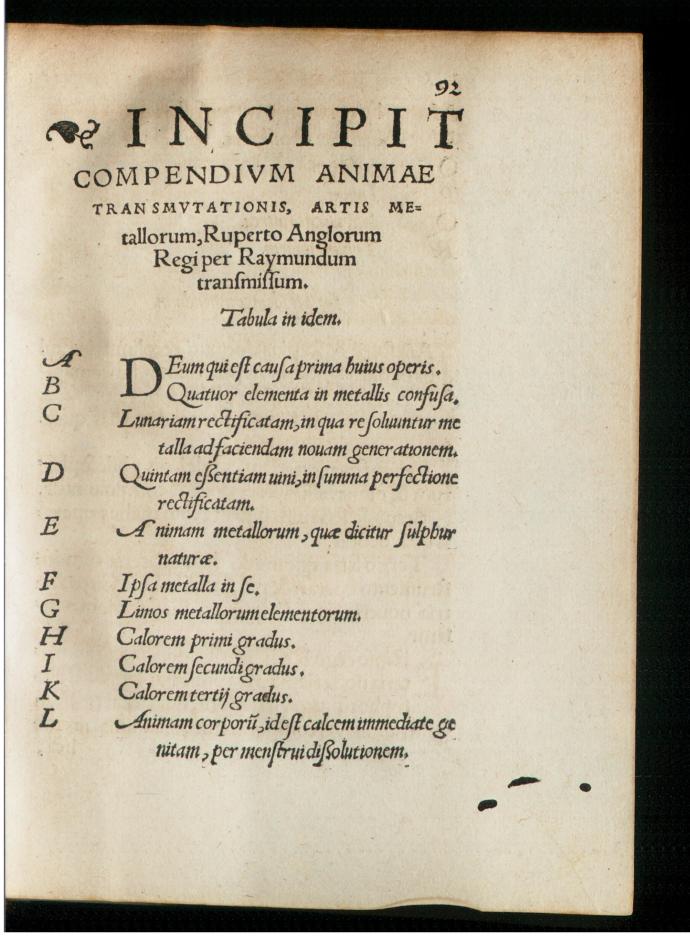 92
INCIPIT
COMPENDIVM ANIMAE
TRANSMVTATIONIS, ARTIS ME=
tallorum, Ruperto Anglorum
Regi per Raymundum
tranſmiſſum.
Tabula in idem.
A DEum qui eſt cauſa prima huius operis.
B Quatuor elementa in metallis confuſa.
C Lunariam rectificatam, in qua reſoluuntur me
talla ad faciendam nouam generationem.
D Quintam eſſentiam uini, in ſumma perfectione
rectificatam.
E Animam metallorum, quæ dicitur ſulphur
naturæ.
F Ipſa metalla in ſe.
G Limos metallorum elementorum.
H Calorem primi gradus.
I Calorem ſecundi gradus.
K Calorem tertij gradus.
L Animam corporū, id eſt calcem immediate ge
nitam, per menſtrui diſſolutionem.